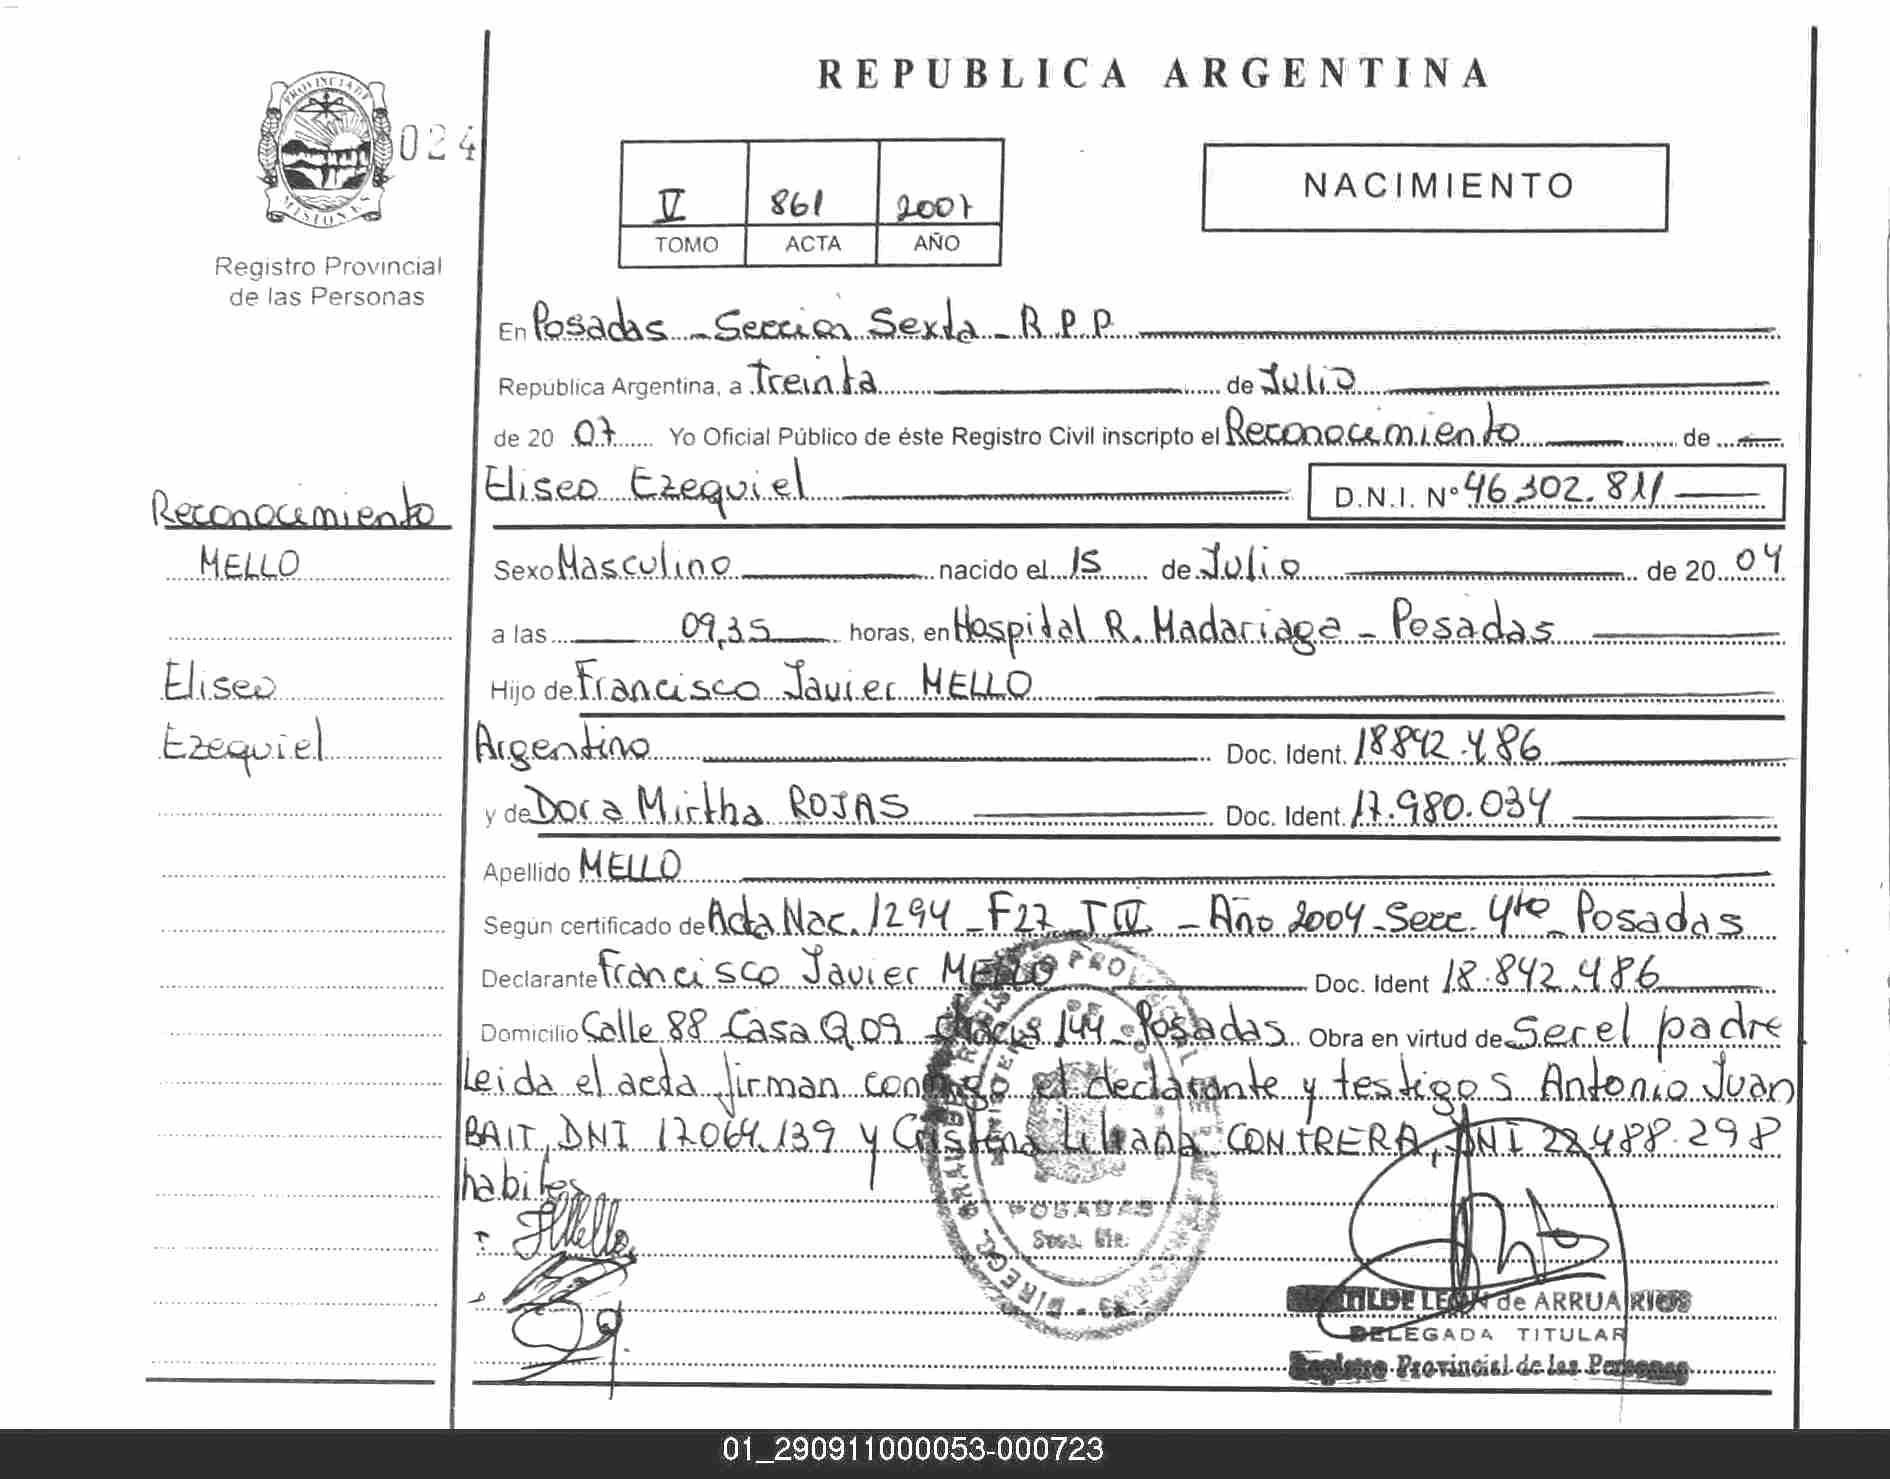 REPUBLICA ARGENTINA
PROVINCIA DE
MISIONES
024
Registro Provincial
de las Personas
V 861 2007
TOMO ACTA AÑO
NACIMIENTO
En Posadas - Sección Sexta - R.P.P.
Republica Argentina, a Treinta de Julio
de 20 07 Yo Oficial Público de éste Registro Civil inscripto el Reconocimiento de
Eliseo Ezequiel D.N.I. Nº 46.302.811
Reconocimiento
MELLO
Eliseo
Ezequiel
Sexo Masculino nacido el 15 de Julio de 20 04
a las 09,35 horas, en Hospital R. Madariaga - Posadas
Hijo de Francisco Javier MELLO
Argentino Doc. Ident. 18842.486
y de Dora Mirtha ROJAS Doc. Ident. 17.980.034
Apellido MELLO
Según certificado de Acta Nac. 1294 - F27 T IV - Año 2004 - Secc. 4to - Posadas
Declarante Francisco Javier MELLO Doc. Ident 18.842.486
Domicilio Calle 88 Casa Q 09 Chacus 144 - Posadas Obra en virtud de Ser el padre
Leida el acta firman conmigo el declarante y testigos Antonio Juan
BAIT, DNI 17.064.139 y Cristina Liliana CONTRERA, DNI 22.488.298
habiles
POSADAS
LEON de ARRUA RIOS
DELEGADA TITULAR
Registro Provincial de las Personas
01_290911000053-000723